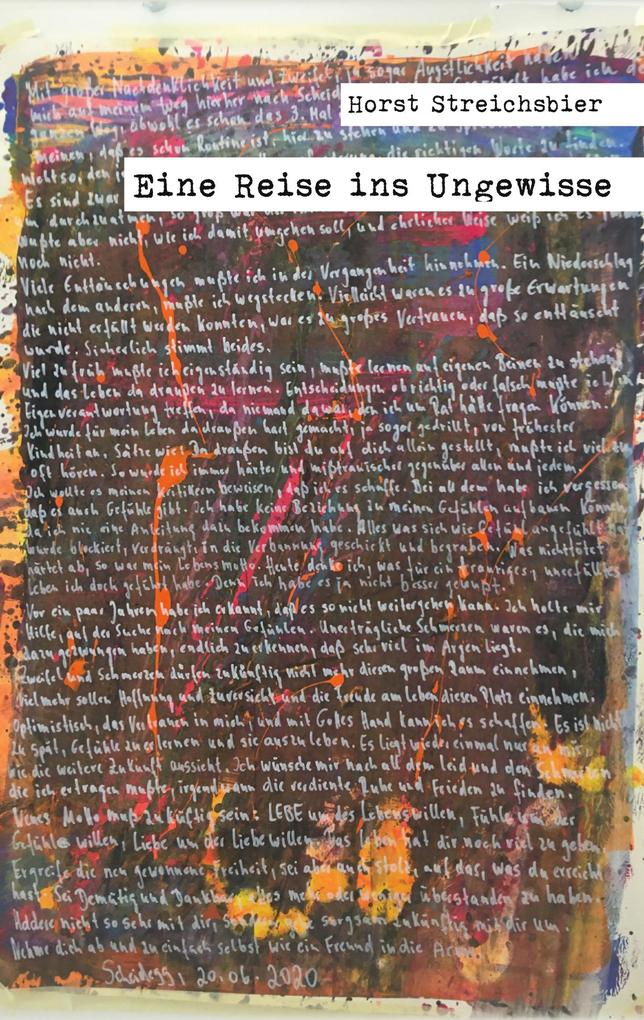 Mit großer Nachdenklichkeit und Zweifel, ja sogar Ängstlichkeit haben
mich auf meinem Weg hierher nach Scheid habe ich
ganzen Weg, obwohl es schon das 3. Mal
Horst Streichsbier
meinen, daß schon Routine ist, hier zu stehen und zu
die richtigen Worte zu finden.
Eine Reise ins Ungewisse
Es sind zwar
durchzuatmen, so groß war
wußte aber nicht, wie ich damit umgehen soll, und ehrlicher Weise weiß ich es
noch nicht.
Viele Enttäuschungen mußte ich in der Vergangenheit hinnehmen. Ein Niederschlag
nach dem anderen, mußte ich wegstecken. Vielleicht waren es zu große Erwartungen
die nicht erfüllt werden konnten, war es zu großes Vertrauen, daß so enttäuscht
wurde. Sicherlich stimmt beides.
Viel zu früh mußte ich eigenständig sein, mußte lernen auf eigenen Beinen zu stehen
und das Leben da draußen zu lernen. Entscheidungen ob richtig oder falsch mußte ich in
Eigenverantwortung treffen, da niemand da war, den ich um Rat hätte fragen können.
Ich wurde für mein Leben da draußen hart gemacht, ja sogar gedrillt, von frühester
Kindheit an. Sätze wie: Da draußen bist du auf dich allein gestellt, mußte ich viel zu
oft hören. So wurde ich immer härter und mißtrauischer gegenüber allen und jedem.
Ich wollte es meinen Kritikern beweisen, daß ich es schaffe. Bei all dem habe ich vergessen
daß es auch Gefühle gibt. Ich habe keine Beziehung zu meinen Gefühlen aufbauen können
da ich nie eine Anleitung dazu bekommen habe. Alles was sich wie Gefühl angefühlt
wurde blockiert, verdrängt, in die Verbannung geschickt und begraben. Was nicht tötet
härtet ab, so war mein Lebensmotto. Heute denke ich, was für ein trauriges, unerfülltes
Leben ich doch geführt habe. Denn ich habe es ja nicht besser gewußt.
Vor ein paar Jahren habe ich erkannt, daß es so nicht weitergehen kann. Ich holte mir
Hilfe, auf der Suche nach meinen Gefühlen. Unerträgliche Schmerzen waren es, die mich
dazu gezwungen haben, endlich zu erkennen, daß sehr viel im Argen liegt.
Zweifel und Schmerzen dürfen zukünftig nicht mehr diesen großen Raum einnehmen,
vielmehr sollen Hoffnung und Zuversicht und die Freude am Leben diesen Platz einnehmen.
Optimistisch, das Vertrauen in mich, und mit Gottes Hand kann ich es schaffen. Es ist nicht
zu spät, Gefühle zu erlernen und sie auszuleben. Es liegt wieder einmal nur an mir
wie die weitere Zukunft aussieht. Ich wünsche mir nach all dem Leid und den Schmerzen
die ich ertragen mußte, irgendwann die verdiente Ruhe und Frieden zu finden.
Neues Motto muß zukünftig sein: LEBE um des Lebens willen, Fühle um der
Gefühle willen, Liebe um der Liebe willen. Das Leben hat dir noch viel zu geben.
Ergreife die neu gewonnene Freiheit, sei aber auch stolz, auf das, was du erreicht
hast. Sei Demütig und Dankbar alles mehr oder weniger überstanden zu haben.
Haddere nicht so sehr mit dir, sondern gehe sorgsam zukünftig mit dir um.
Nehme dich ab und zu einfach selbst wie ein Freund in die Arme.
Scheidegg, 20.06.2020